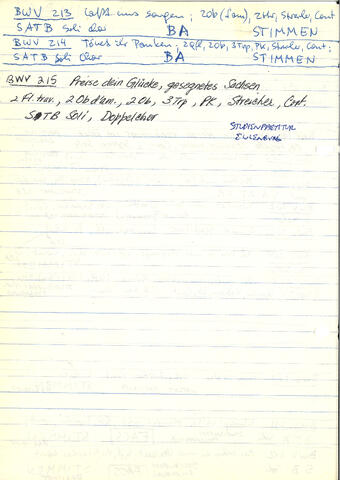 BWV 213 Laßt uns sorgen; 20b (d'am), 2 Hr, Streicher, Cont
SATB Soli Chor BA STIMMEN
BWV 214 Tönet ihr Pauken; 2 Qfl, 2Ob, 3Trp, PK, Streicher, Cont;
SATB Soli Chor BA STIMMEN
BWV 215 Preise dein Glücke, gesegnetes Sachsen
2 Fl. trav., 2 Ob d'am., 2 Ob, 3 Trp, PK, Streicher, Cont.
SATB Soli, Doppelchor
STUDIENPARTITUR
EULENBURG